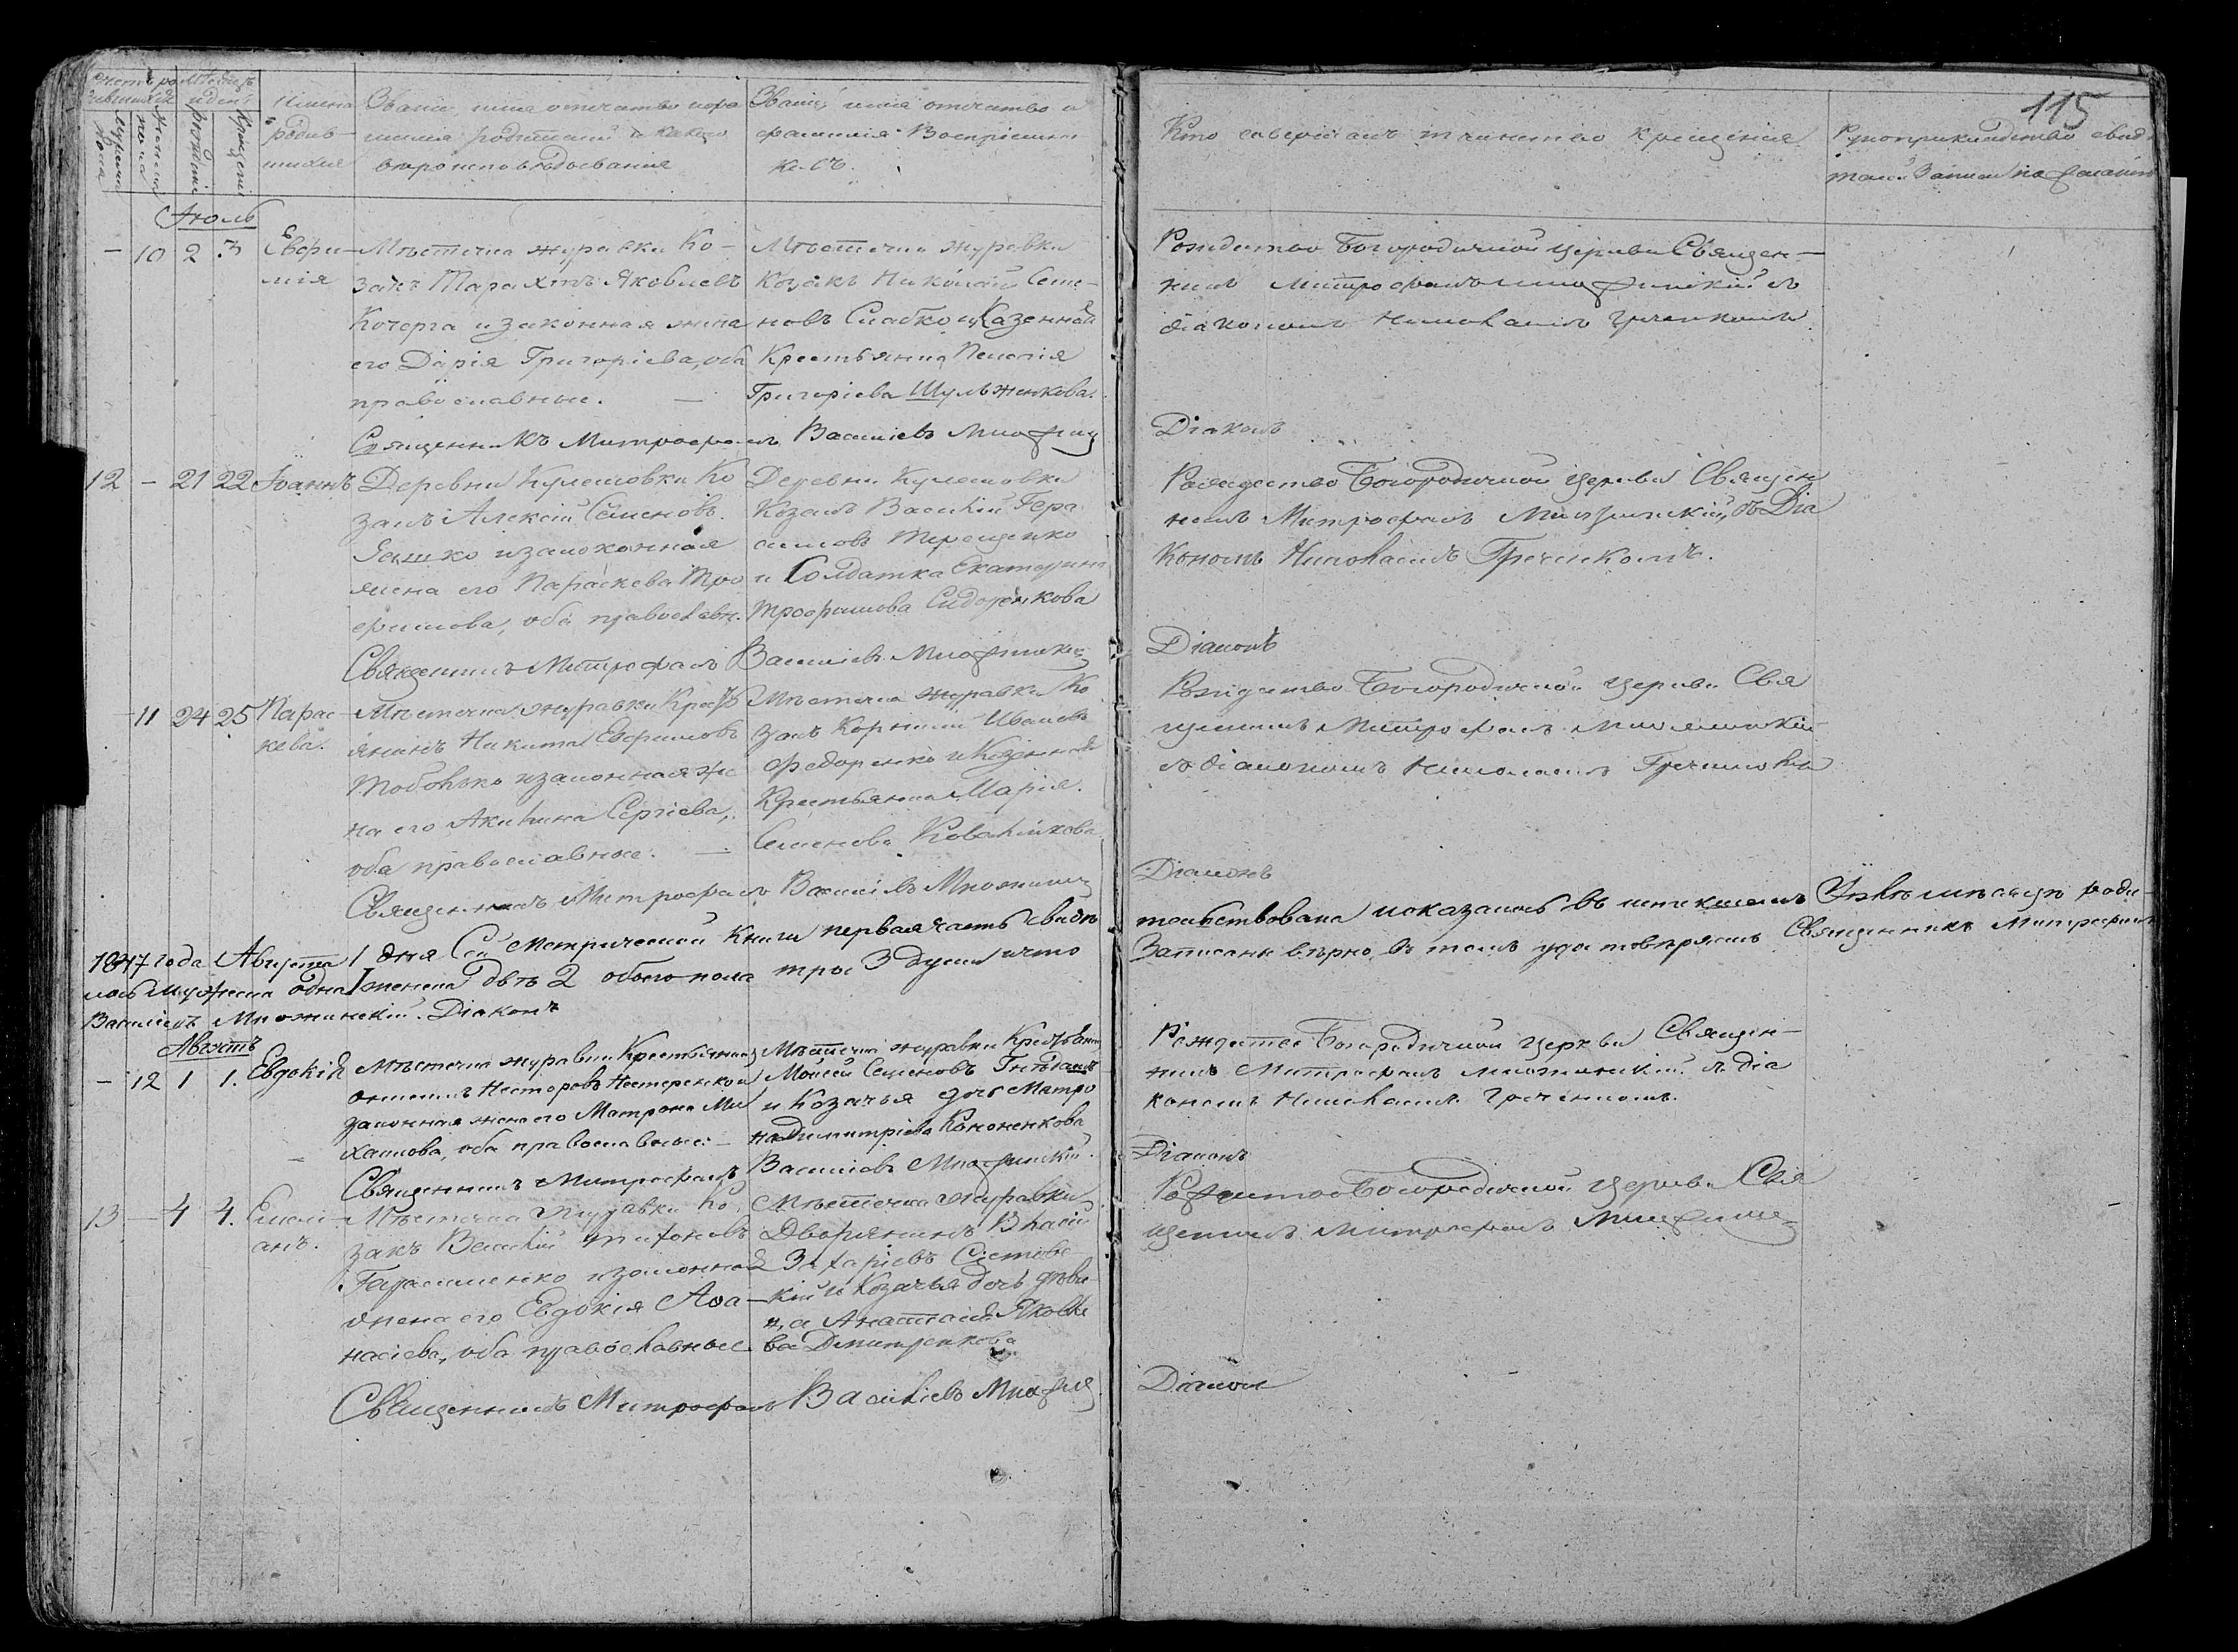 115
Счетъ ро Мѣсяцъ
дившихся и день
Мужеска пола
Женска пола
рожденія
Крещенія
Имена родив-
шихся
Званіе, имя отчество и фа
милія родителей и какого
вѣроисповѣдованія
Званіе имя отчество и
фамилія Воспріемни
ковъ.
Кто совершалъ таинство крещенія
Рукоприкладство свидѣ
телей записи по желанію
Іюль
— 10 2 3 Евфи-
мія
Мѣстечка Журавки Ко-
закъ Тарахтъ Яковлевъ
Кочерга и законная жена
его Дарія Григоріева, оба
православные. —
Мѣстечка Журавки
Козакъ Николай Семе-
новъ Слабко и Казенная
Крестьянка Пелагія
Григоріева Шульженкова.
Рождество Богородичной Церкви Священ-
никъ Митрофанъ Множинскій съ
діакономъ Николаемъ Греченкомъ
Священникъ Митрофанъ Василіевъ Множин
Діаконъ
12 — 21 22 Іоаннъ
Деревни Кулешовки Ко
закъ Алексій Семеновъ
Яшко и законная
жена его Параскева Тро
фимова, оба православн.
Деревни Кулешовки
Козакъ Василій Гера
симовъ Терещенко
и Солдатка Екатерина
Трофимова Сидоренкова
Рождество Богородичной Церкви Священ
никъ Митрофанъ Множинскій, съ Діа
кономъ Николаемъ Греченкомъ.
Священникъ Митрофанъ Василіевъ Множинскій
Діаконъ
— 11 24 25 Парас
кева.
Мѣстечка Журавки Крест
янинъ Никита Евфимовъ
и законная же
на его Акилина Сергіева,
оба православные. —
Мѣстечка Журавки Ко
закъ Корнилій Ивановъ
Федоренко и Казенная
Крестьянка Марія
Семенова Ковалькова
Рождество Богородичной Церкви Свя
щенникъ Митрофанъ Множинскій
съ діакономъ Николаемъ Греченком
Священникъ Митрофанъ Василіевъ Множинск
Діаконъ
1847 года Августа 1 дня Сей Метрической Книги первая часть свидѣ
тельствована и оказалось въ истекшемъ Іюлѣ мѣсяцѣ роди-
лось мужеска одна 1 женска двѣ 2 обоего пола трое 3 души что
Записаны вѣрно, въ томъ удостовѣряемъ Священникъ Митрофанъ
Василіевъ Множинскій. Діаконъ
Августъ
— 12 1 1. Евдокія
Мѣстечка Журавки Крестьянинъ
Несторовъ Нестеренко и
законная жена его Матрона Ми
хаилова, оба православные. —
Мѣстечка Журавки Крестьянинъ
Мойсей Семеновъ
и Козачья дочь Матро
на Димитріева Кононенкова
Рождество Богородичной Церкви Священ-
никъ Митрофанъ Множинскій съ діа
кономъ Николаемъ Греченкомъ.
Священникъ Митрофанъ Василіевъ Множинскій
Діаконъ
13 — 4 4. Емели-
анъ.
Мѣстечка Журавки Ко
закъ Василій Тихоновъ
Гарасименко и законная
жена его Евдокія Аѳа-
насіева, оба православные.
Мѣстечка Журавки
Дворянинъ Власій
Захаріевъ
и Козачья дочь дѣви
ца Анастасія Яковле
ва Дмитренкова
Рождество Богородичной Церкви Свя
щенникъ Митрофанъ Множинск
Священникъ Митрофанъ Василіевъ Множин
Діаконъ